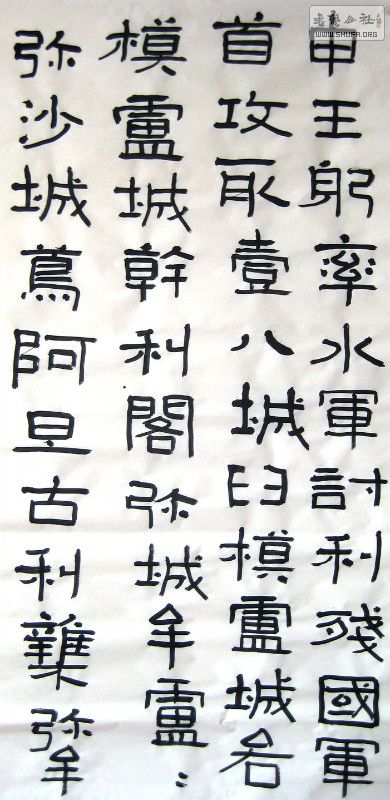 申王躬率水軍討利殘國軍
首攻取壹八城臼模盧城各
模盧城幹利閣弥城牟盧:
弥沙城蔦阿旦古利雜弥牟
书艺公社
WWW.SHUFA.ORG